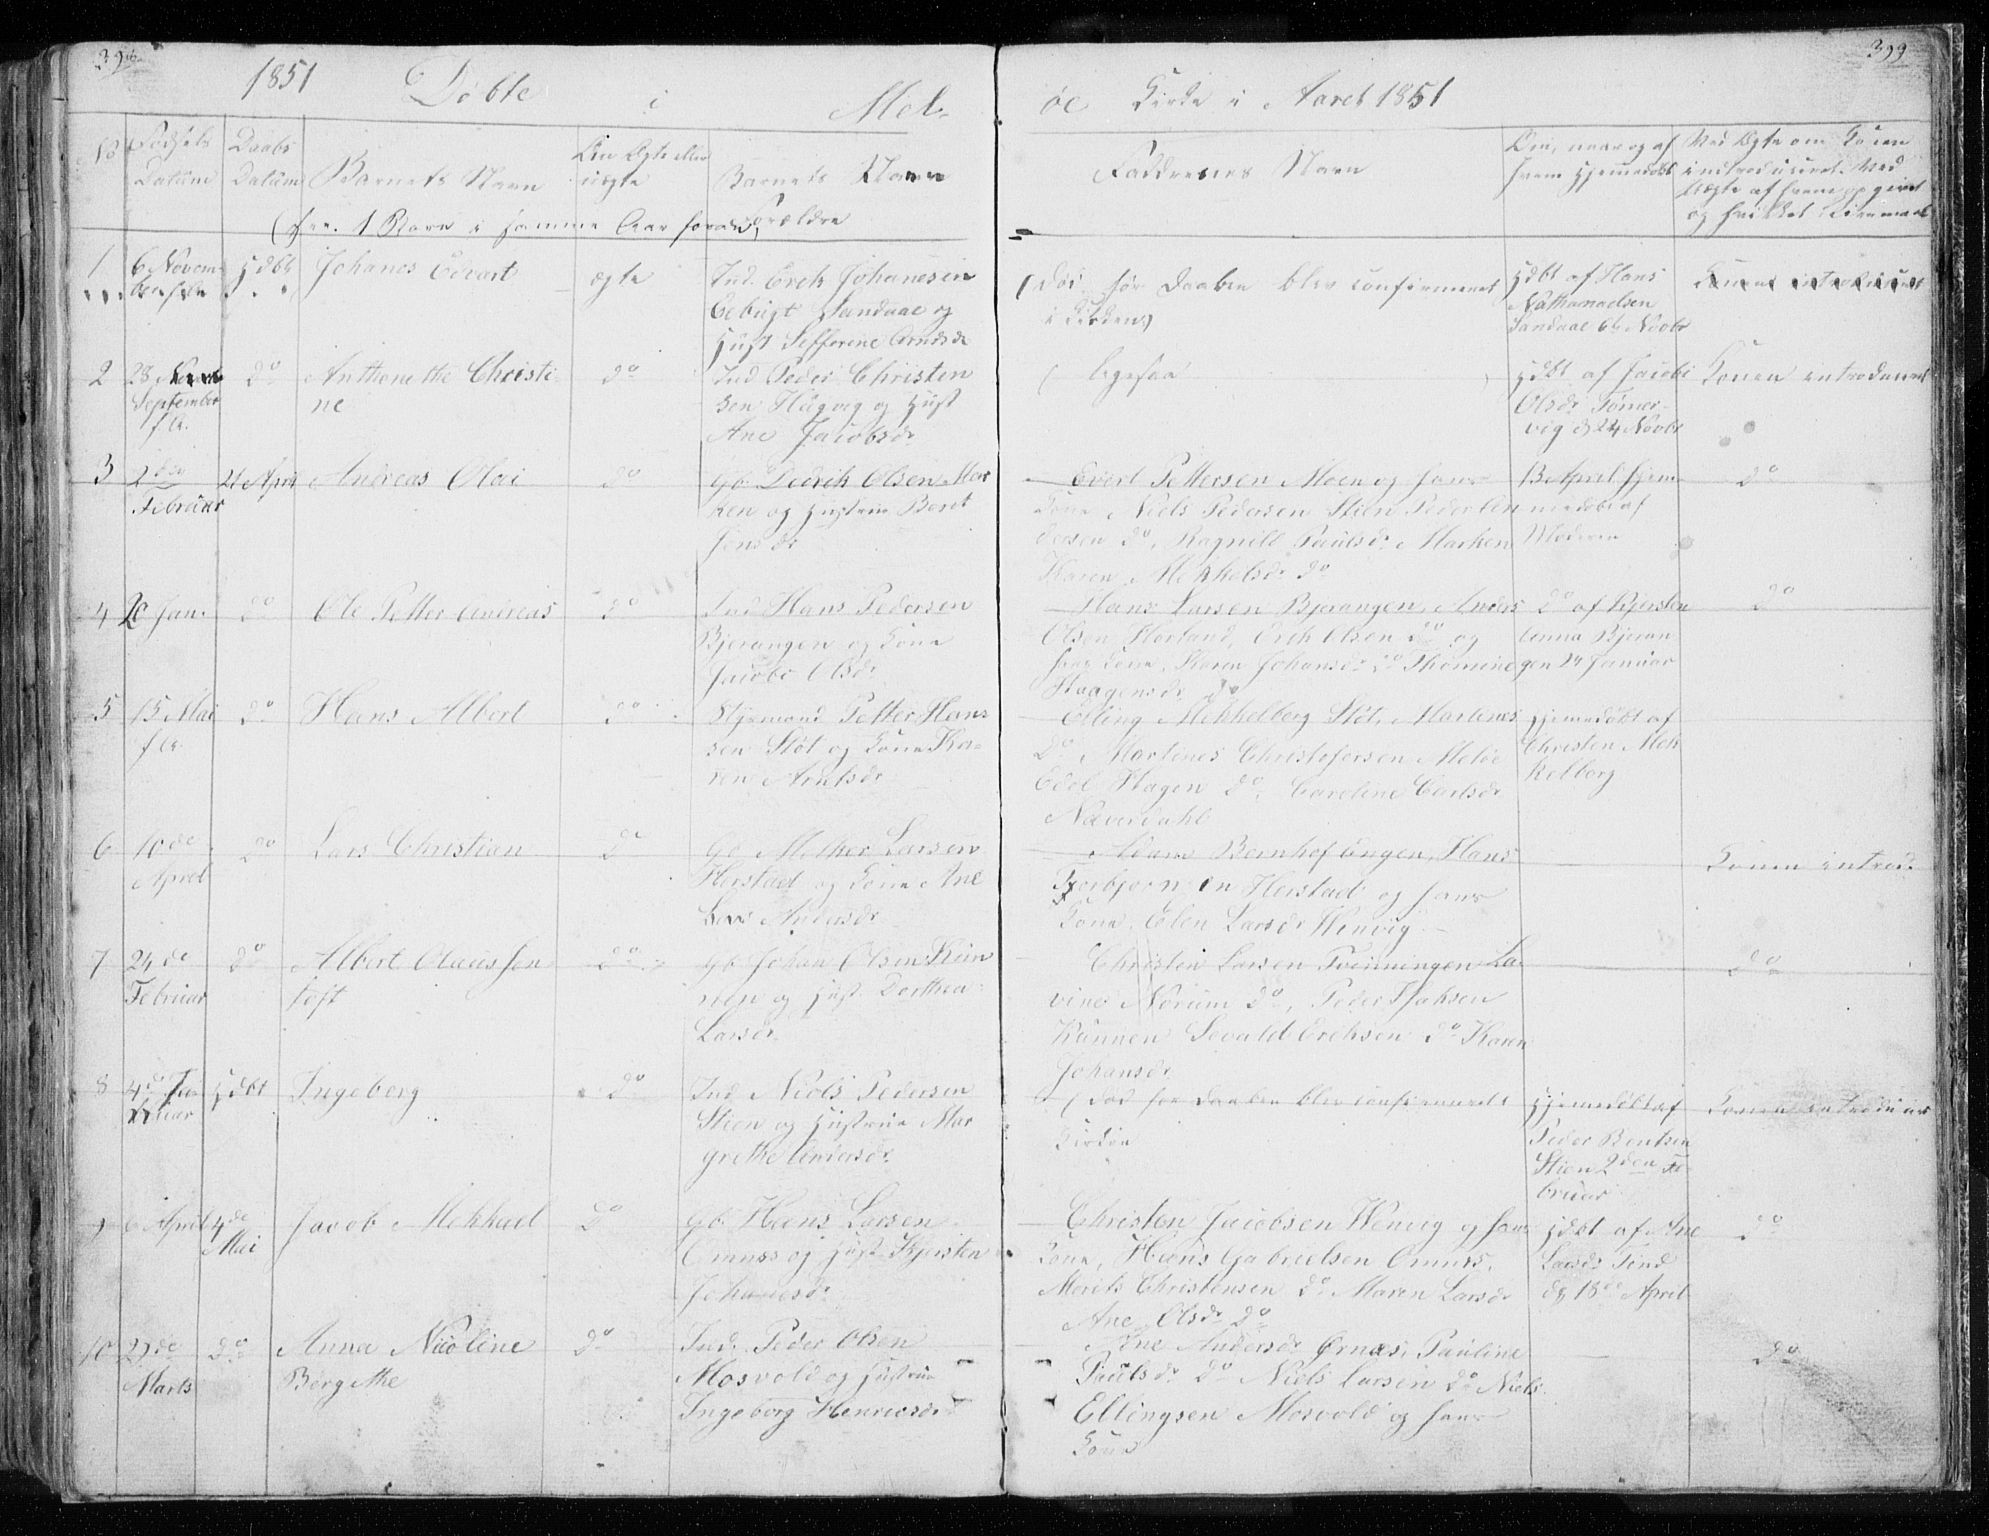 398
399
1851 Döbte i Mel-
öe Kirke i Aaret 1851
No
Födsels
Datum
Daabs
Datum
Barnets Navn
Om Ægte eller
uægte
Barnets
Forældre
Faddrenes Navn
Om, naar og af
hvem Hjemmedöbt
Ved Ægte om Konen
introduceret. Ved
Uægte af hvem opgivet
og hvilket Leiermaal
1 Barn i samme Aar
1
6 Novem-
Hdbt
Johanes Edvart
ægte
Ind. Erek Johanesen
Sandaae og
Hust Sefferine
Död för Daaben blev confirmeret
i Kirken)
Hdbt af Hans
Nathanaelsen
Sandaae 6te Novbr
Konen introduceret
2
28
September
f. A.
do
Anthonethe Christi-
ne
do
Ind Peder Christen
sen Hugvig og Hust
Ane Jacobsdr
( ligesaa )
Hdbt af Jacob
Olsdr Tömer-
vig d 24 Novbr
Konen introduceret
3
2den
Februar
21 April
Andreas Olai
do
Gb. Dedrik Olsen Mar
ken og Hustrue Beret
Jensdr
Evert Pettersen Moen og hans
Kone Niels Pedersen Stien Peder An
dersen do, Ragnild Paulsdr Marken
Karen Mekkelsdr do
13 April hjem-
medöbt af
Moderen
do
4
20 Jan.
do
Ole Petter Andreas
do
Ind Hans Pedersen
Bjerangen og Kone
Jacobe Olsdr
Hans Larsen Bjerangen, Anders
Olsen Horland, Erek Olsen do og
hans Kone, Karen Johansdr do Thomine
Haagensdr do
do af Kjersten
Anna Bjeran
gen 24 Januar
do
5
15 Mai
f A.
do
Hans Albert
do
Styrmand Petter Han-
sen Stöt og Kone Ka-
ren Arntsdr
Elling Mekkelborg Stöt, Martines
do, Martines Christofersen Melöe
Edel Hagen do, Caroline Carlsdr
Næverdahl
Hjemedöbt af
Christen Mek
kelborg
6
10de
April
do
Lars Christian
do
Gb Melker Larsen
Herstad og Kone Ane
Andersdr
Adam Bernhof Engen, Hans
Torbjörnsen Herstad og hans
Kone, Elen Larsdr Wenvig
Konen introd.
7
24de
Februar
do
Albert Olaus Jen
toft
do
Gb Johan Olsen Kun
nen og Hust Dorthea
Larsdr
Christen Larsen Tvinningen La-
vine Norum do, Peder Isaksen
Kunnen Sevald Ereksen do Karen
Johansdr
do
8
4de Fe-
bruar
Hdbt
Ingeborg
do
Ind Niels Pedersen
Stien og Hustrue Mar
grethe Andersdr
( död för Daaben blev confirmeret i
Kirken
Hjemedöbt af
Peder Bentsen
Stien 2den Fe-
bruar
Konen introduceret
9
6 April
4de
Mai
Jacob Mekkael
do
Gb Hans Larsen
Ornæs og Hust Kjersten
Johanesdr
Christen Jacobsen Wenvig og hans
Kone, Hans Gabrielsen Ornæs,
Morits Christensen do Maren Larsdr
Ane Olsdr do
Hdbt af Ane
Larsdr Tind
d 18de April
do
10
27de
Marts
do
Anna Nicoline
Bergithe
do
Ind. Peder Olsen
Mosvold og Hustrue
Ingeborg Henricsdr
Ane Andersdr Örnæs, Pauline
Paulsdr do Niels Larsen do Niels
Ellingsen Mosvold og hans
Kone
do